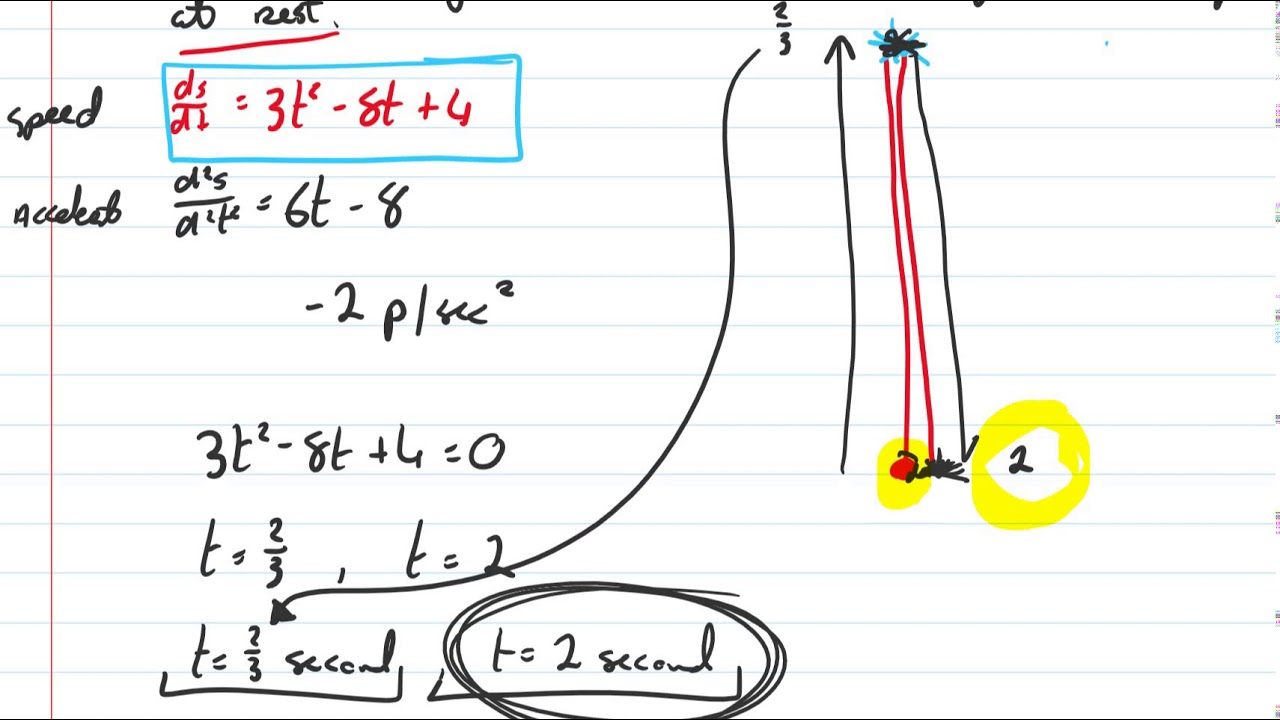 at rest.
speed ds/dt = 3t² - 8t + 4
Accelerat d²s/d²t² = 6t - 8
-2 p/sec²
3t² - 8t + 4 = 0
t = 2/3 , t = 2
t = 2/3 second t = 2 second
2/3
2